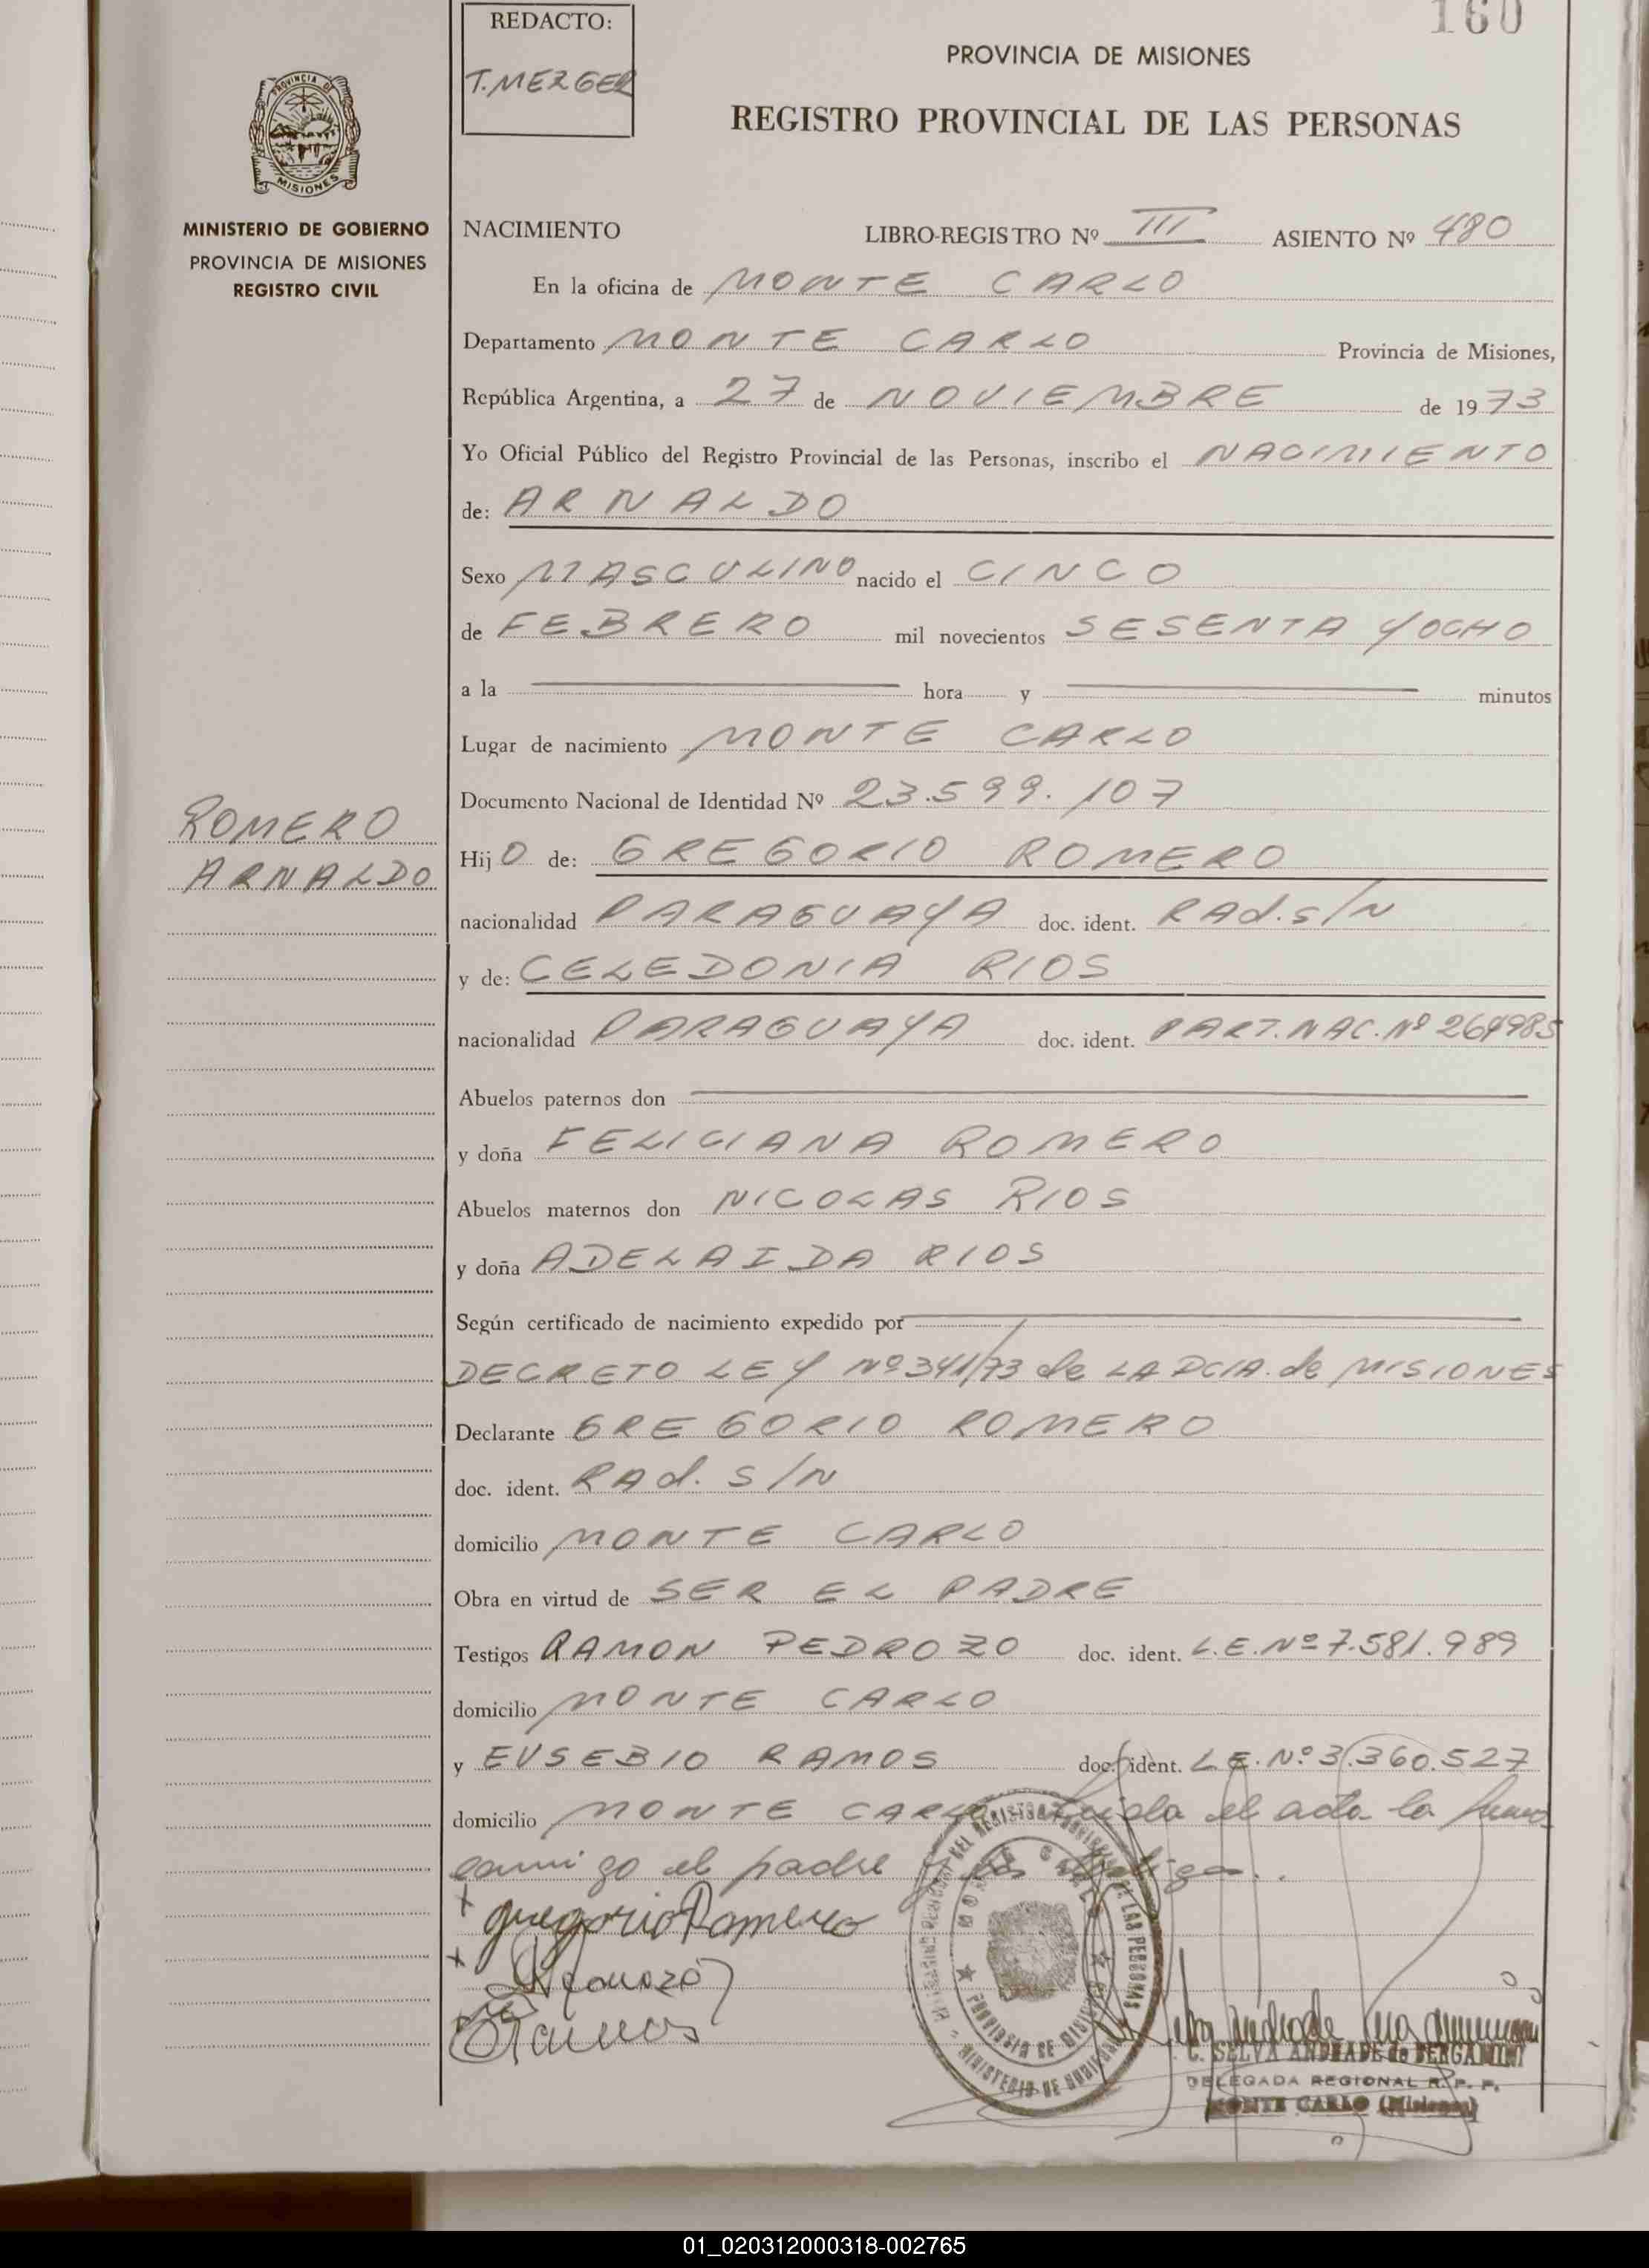 160
REDACTO:
T. MEZGER
PROVINCIA DE MISIONES
REGISTRO PROVINCIAL DE LAS PERSONAS
PROVINCIA DE
MISIONES
MINISTERIO DE GOBIERNO
PROVINCIA DE MISIONES
REGISTRO CIVIL
NACIMIENTO LIBRO-REGISTRO Nº III ASIENTO Nº 480
En la oficina de MONTE CARLO
Departamento MONTE CARLO Provincia de Misiones,
República Argentina, a 27 de NOVIEMBRE de 1973
Yo Oficial Público del Registro Provincial de las Personas, inscribo el NACIMIENTO
de: ARNALDO
Sexo MASCULINO nacido el CINCO
de FEBRERO mil novecientos SESENTA Y OCHO
a la hora y minutos
Lugar de nacimiento MONTE CARLO
Documento Nacional de Identidad Nº 23.599.107
ROMERO
ARNALDO
Hijo de: GREGORIO ROMERO
nacionalidad PARAGUAYA doc. ident. RAd. s/N
y de: CELEDONIA RIOS
nacionalidad PARAGUAYA doc. ident. PART. NAC. Nº 264985
Abuelos paternos don
y doña FELICIANA ROMERO
Abuelos maternos don NICOLAS RIOS
y doña ADELAIDA RIOS
Según certificado de nacimiento expedido por
DECRETO LEY Nº 341/73 de LA PCIA. de MISIONES
Declarante GREGORIO ROMERO
doc. ident. RAd. S/N
domicilio MONTE CARLO
Obra en virtud de SER EL PADRE
Testigos RAMON PEDROZO doc. ident. L.E. Nº 7.581.989
domicilio MONTE CARLO
y EUSEBIO RAMOS doc. ident. L.E. Nº 3.360.527
domicilio MONTE CARLO el acta la
el padre
Gregorio Romero
Ramos
C. SELVA ANDRADE de BERGAMINI
DELEGADA REGIONAL R. P. P.
MONTE CARLO (Misiones)
01_020312000318-002765